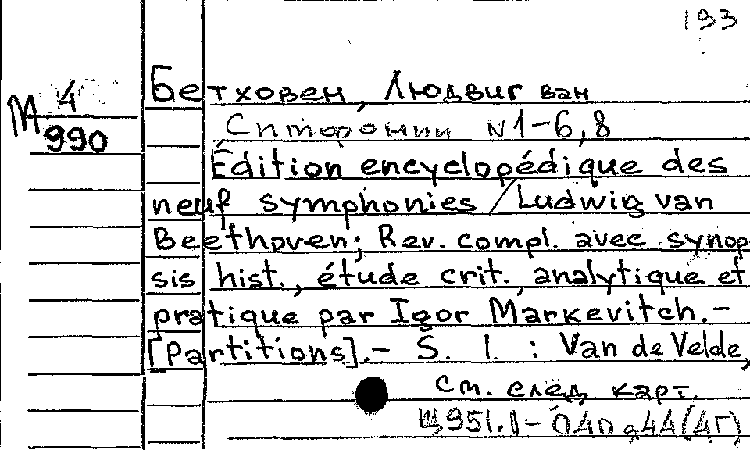 193
М 4
990
Бетховен, Людвиг ван
Симфонии №1-6,8
Édition encyclopédique des
neuf symphonies / Ludwig van
Beethoven; Rev. compl. avec synop
sis hist., étude crit., analytique et
pratique par Igor Markevitch.-
[Partitions].- S. l. : Van de Velde,
см. след. карт.